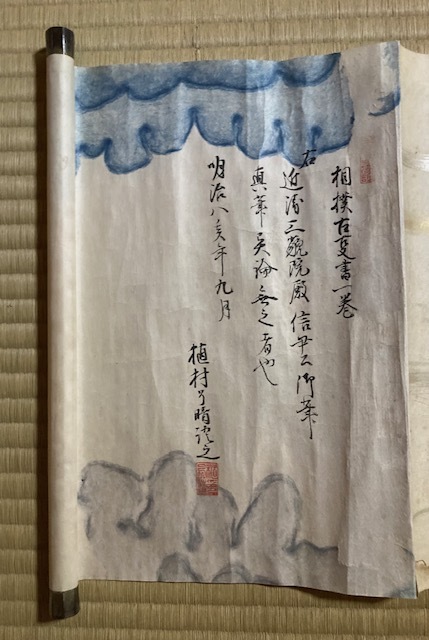 相撲書一巻
右
近衛三藐院殿信尹公御筆
真筆異論無之者也
明治八亥年九月
植村了晴證之